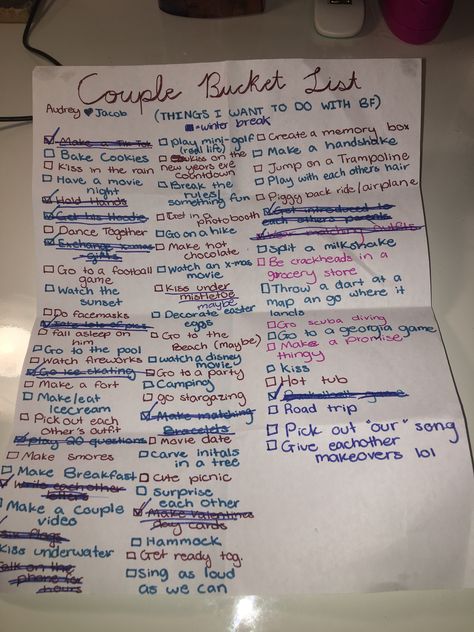 Couple Bucket List
Audrey ♥ Jacob
(THINGS I WANT TO DO WITH BF)
■=winter break
Make a Tik Tok
Bake Cookies
Kiss in the rain
Have a movie
night
Hold Hands
Get his Hoodie
Dance Together
Exchange x-mas
gifts
Go to a football
game
Watch the
sunset
Do facemasks
Take lots of pics
fall asleep on
him
Go to the pool
Watch fireworks
Go ice skating
Make a fort
Make/eat
Icecream
Pick out each
other's outfit
Play 20 questions
Make smores
Make Breakfast
Write eachother
letters
Make a couple
video
six flags
Kiss underwater
Talk on the
phone for
hours
play mini-golf
(real life)
kiss on the
new years eve
countdown
Break the
rules/
something fun
in a
photobooth
Go on a hike
Make hot
chocolate
Watch an x-mas
movie
Kiss under
mistletoe
maybe
Decorate easter
eggs
Go to the
Beach (maybe)
watch a disney
movie
Go to a party
Camping
go stargazing
Make matching
Bracelets
Movie date
carve initals
in a tree
cute picnic
surprise
each other
Make valentines
day cards
Hammock
Get ready tog.
Sing as loud
as we can
Create a memory box
Make a handshake
Jump on a Trampoline
Play with each others hair
Piggy back ride/airplane
Get introduced to
each others parents
matching outfits
split a milkshake
Be crackheads in a
grocery store
Throw a dart at a
map an go where it
lands
Go scuba diving
Go to a georgia game
Make a promise
thingy
Kiss
Hot tub
Basketball game
Road trip
Pick out "our" song
Give eachother
makeovers lol